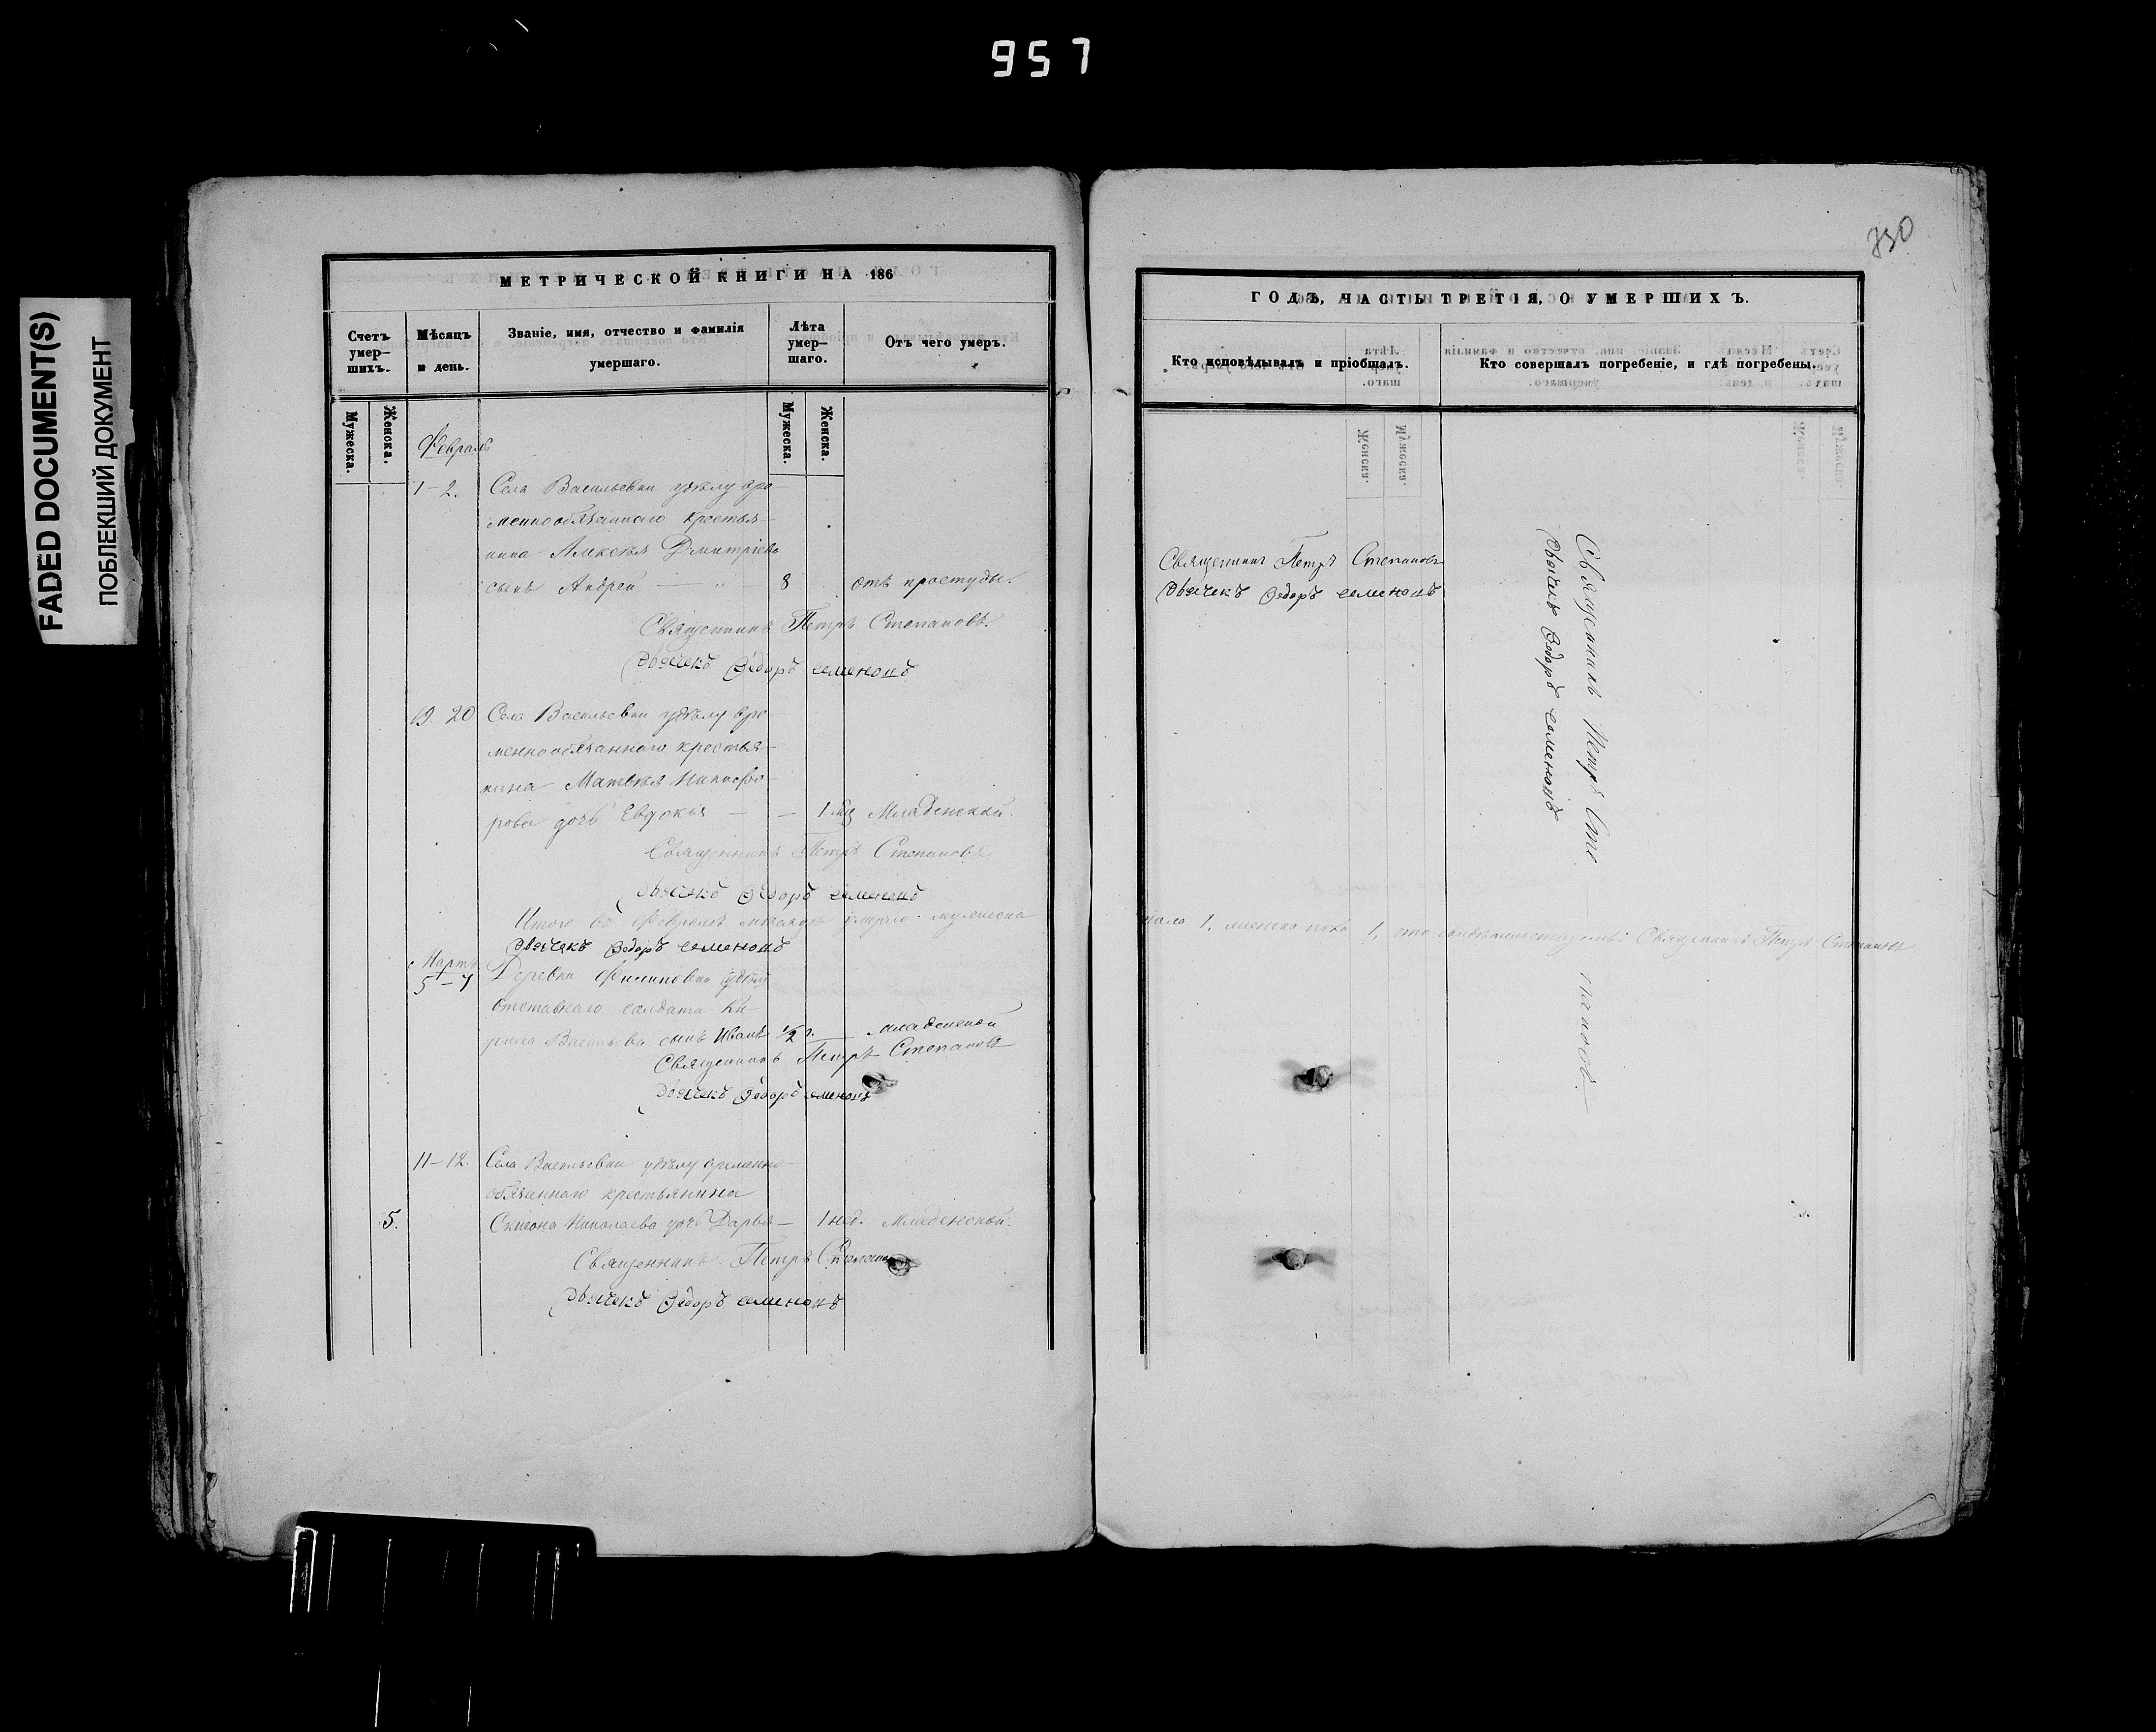 957
FADED DOCUMENT(S)
ПОБЛЕКШИЙ ДОКУМЕНТ
МЕТРИЧЕСКОЙ КНИГИ НА 186
Счетъ умер— шихъ.
Мѣсяцъ и день.
Званіе, имя, отчество и фамилія умершаго.
Лѣта умер— шаго.
Отъ чего умеръ.
Мужеска.
Женска.
Мужеска.
Женска.
Февраль
1–2. Села Васильевки удѣлу вре-
меннообязаннаго крестья-
нина Алексѣя Дмитріева
сынъ Андрей — 8 отъ простуды.
Священникъ Петръ Степановъ.
Дьячекъ Ѳедоръ Семеновъ
19. 20 Села Васильевки удѣлу вре-
меннообязаннаго крестья-
нина Матвѣя Никифо-
рова дочь Евдокія — — 1 Младенской.
Священникъ Петръ Степановъ
Дьячекъ Ѳедоръ Семеновъ
Итого въ Февралѣ мѣсяцѣ умерло мужеска
Дьячекъ Ѳедоръ Семеновъ
Мартъ
5–7 Деревни Филиповки
отставнаго солдата Ки-
рила Васильева сынъ Иванъ 1/2 г. — младенской
Священникъ Петръ Степановъ
Дьячекъ Ѳедоръ Семеновъ
11–12. Села Васильевки удѣлу временно-
обязаннаго крестьянина
5. Симеона Николаева дочь Дарья — 1 нед. Младенской.
Священникъ Петръ Степановъ
Дьячекъ Ѳедоръ Семеновъ
730
ГОДЪ, ЧАСТЬ ТРЕТІЯ, О УМЕРШИХЪ.
Кто исповѣдывалъ и пріобщалъ.
Кто совершалъ погребеніе, и гдѣ погребены.
Священникъ Петръ Степановъ
Дьячекъ Ѳедоръ Семеновъ
Священникъ Петръ Сте
пановъ.
Дьячекъ Ѳедоръ Семеновъ
пола 1, женска пола 1, что свидѣтельствуемъ: Священникъ Петръ Степановъ